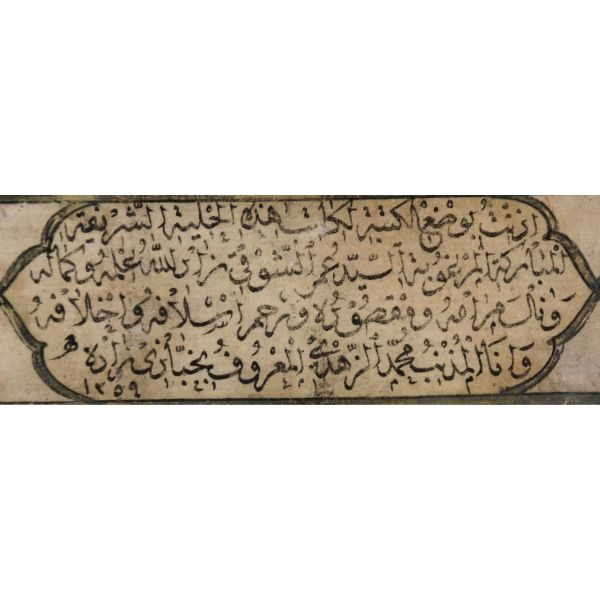 اذنت بوضع الكتبة لكاتب هذه الحلية الشريفة
المباركة المرغوبة السيد عمر الشوقي زاد الله علمه وكماله
ونال مرامه ومقصوده ورحم اسلافه واخلافه
وانا المذنب محمد الزهدي المعروف بخبازى زاده
١٢٥٩